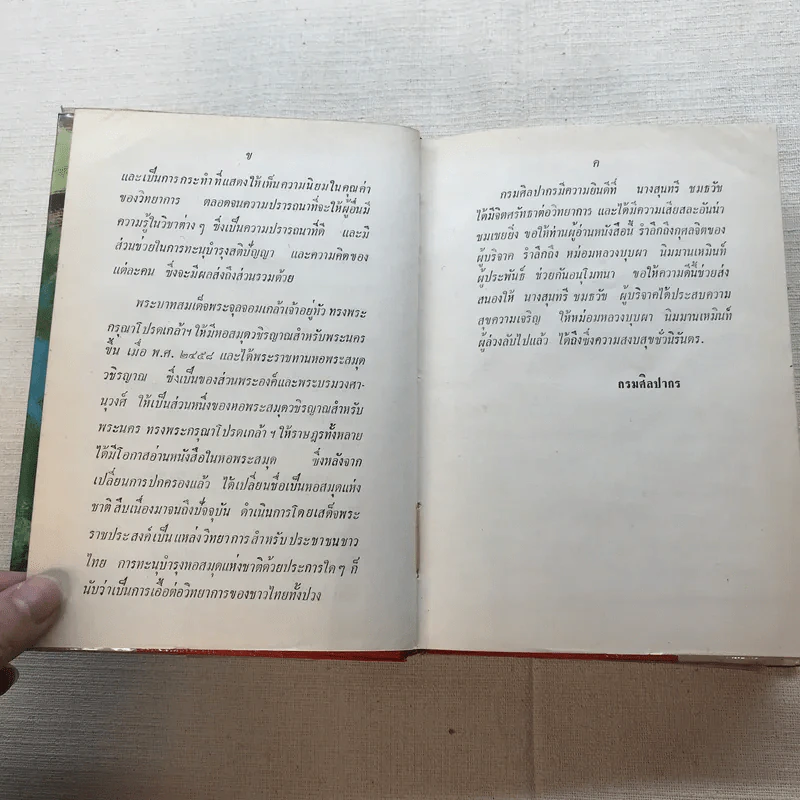 ข
และเป็นการกระทำที่แสดงให้เห็นความนิยมในคุณค่า
ของวิทยาการ ตลอดจนความปรารถนาที่จะให้ผู้อื่นมี
ความรู้ในวิชาต่าง ๆ ซึ่งเป็นความปรารถนาที่ดี และมี
ส่วนช่วยในการทะนุบำรุงสติปัญญา และความคิดของ
แต่ละคน ซึ่งจะมีผลส่งถึงส่วนรวมด้วย
พระบาทสมเด็จพระจุลจอมเกล้าเจ้าอยู่หัว ทรงพระ
กรุณาโปรดเกล้าฯ ให้มีหอสมุดวชิรญาณสำหรับพระนคร
ขึ้น เมื่อ พ.ศ. ๒๔๕๘ และได้พระราชทานหอพระสมุด
วชิรญาณ ซึ่งเป็นของส่วนพระองค์และพระบรมวงศา-
นุวงศ์ ให้เป็นส่วนหนึ่งของหอพระสมุดวชิรญาณสำหรับ
พระนคร ทรงพระกรุณาโปรดเกล้า ฯ ให้ราษฎรทั้งหลาย
ได้มีโอกาสอ่านหนังสือในหอพระสมุด ซึ่งหลังจาก
เปลี่ยนการปกครองแล้ว ได้เปลี่ยนชื่อเป็นหอสมุดแห่ง
ชาติ สืบเนื่องมาจนถึงปัจจุบัน ดำเนินการโดยเสด็จพระ
ราชประสงค์เป็นแหล่งวิทยาการสำหรับประชาชนชาว
ไทย การทะนุบำรุงหอสมุดแห่งชาติด้วยประการใด ๆ ก็
นับว่าเป็นการเอื้อต่อวิทยาการของชาวไทยทั้งปวง
ค
กรมศิลปากรมีความยินดีที่ นางสุนทรี ชมธวัช
ได้มีจิตศรัทธาต่อวิทยาการ และได้มีความเสียสละอันน่า
ชมเชยยิ่ง ขอให้ท่านผู้อ่านหนังสือนี้ รำลึกถึงกุศลจิตของ
ผู้บริจาค รำลึกถึง หม่อมหลวงบุบผา นิมมานเหมินท์
ผู้ประพันธ์ ช่วยกันอนุโมทนา ขอให้ความดีนี้ช่วยส่ง
สนองให้ นางสุนทรี ชมธวัช ผู้บริจาคได้ประสบความ
สุขความเจริญ ให้หม่อมหลวงบุบผา นิมมานเหมินท์
ผู้ล่วงลับไปแล้ว ได้ถึงซึ่งความสงบสุขชั่วนิรันดร.
กรมศิลปากร